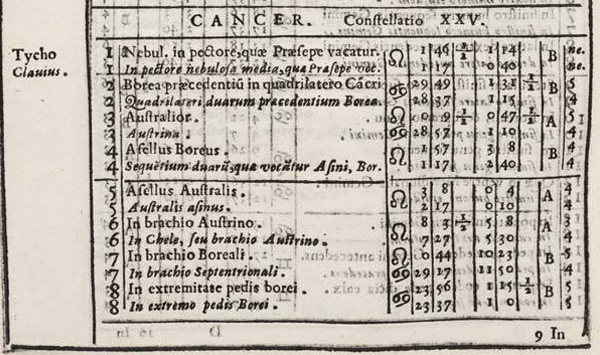 CANCER. Constellatio XXV.
Tycho 1 Nebul. in pectore, quæ Præsepe vacatur. ♌ 1 46 ½ 1 14 B ne.
Clavius. 1 In pectore nebulosa media, quæ Præsepe voc. 1 17 0 40 ne.
2 Borea præcedentiũ in quadrilatero Cãcri ♋ 29 49 1 31 ½ B 5
2 Quadrilateri, duarum præcedentium Borea. 28 37 1 15 4
3 Australior. ♌ 0 9 ½ 0 47 ½ A 5
3 Austrina. ♋ 28 57 1 10 4
4 Asellus Boreus. ♌ 1 57 3 8 B 4
4 Sequẽtium duarũ, quæ vocãtur Asini, Bor. 1 17 2 40 4
5 Asellus Australis. ♌ 3 8 0 4 A 4
5 Australis asinus. 2 17 0 10 4
6 In brachio Austrino. ♌ 8 3 ½ 5 8 A 3
6 In Chele, seu brachio Austrino. 7 27 5 30 4
7 In brachio Boreali. ♌ 0 44 10 23 B 5
7 In brachio Septentrionali. ♋ 29 17 11 50 4
8 In extremitate pedis borei. ♋ 23 56 1 15 ½ B 5
8 In extremo pedis Borei. 23 37 1 0 5
9 In